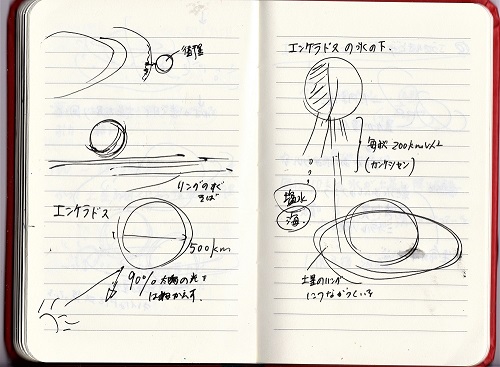 衛星
リングのすぐ
そば
エンケラドス
500km
90% 太陽の光を
はねかえす.
エンケラドスの氷の下.
毎秒 200km以上
(カンケツセン)
塩水
海.
土星のリング
につながっている